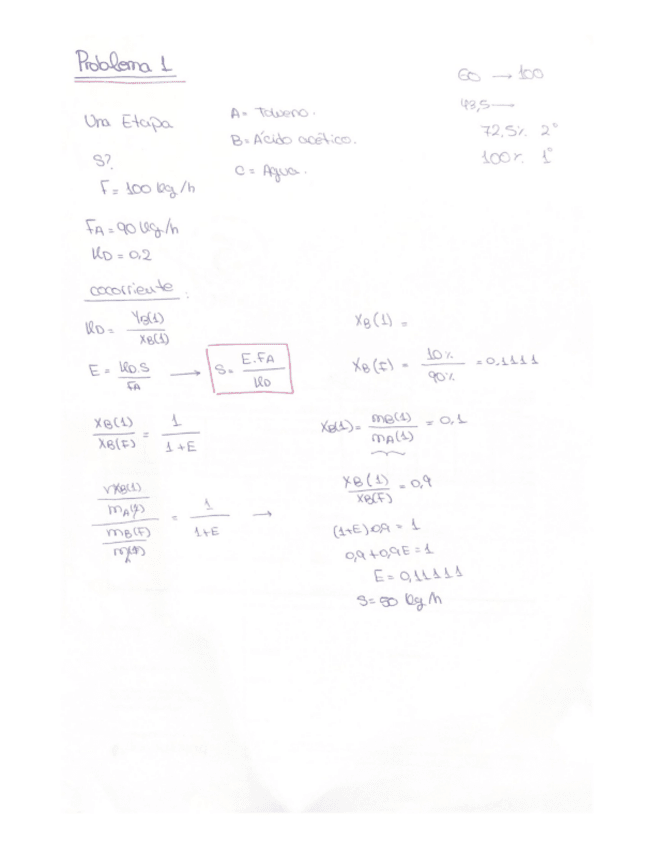 Problema 1
60 → 100
43,5 —
72,5% 2°
100% 1°
Una Etapa
A = Tolueno.
B = Ácido acético.
C = Agua.
S?
F = 100 kg/h
FA = 90 kg/h
KD = 0,2
cocorriente :
KD = YB(1) / XB(1)
E = KD.S / FA → S = E.FA / KD
XB(1) / XB(F) = 1 / 1+E
XB(1) =
XB(F) = 10% / 90% = 0,1111
XB(1) = mB(1) / mA(1) = 0,1
XB(1) / XB(F) = 0,9
mB(F)
= 1 / 1+E →
(1+E)0,9 = 1
0,9 + 0,9E = 1
E = 0,11111
S = 50 kg/h